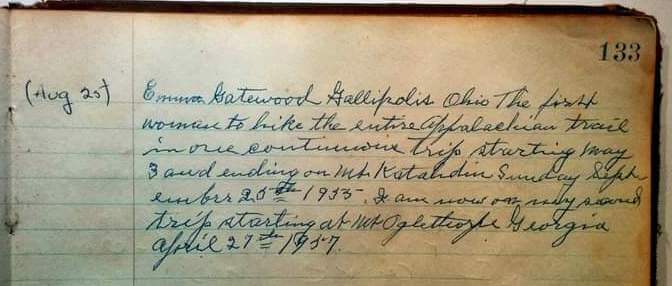 133
(Aug 25) Emma Gatewood Gallipolis Ohio The first
woman to hike the entire Appalachian trail
in one continuous trip starting may
3 and ending on Mt. Katahdin Sunday Sept
ember 25th 1955. I am now on my second
trip starting at Mt Oglethorpe Georgia
April 27th 1957.